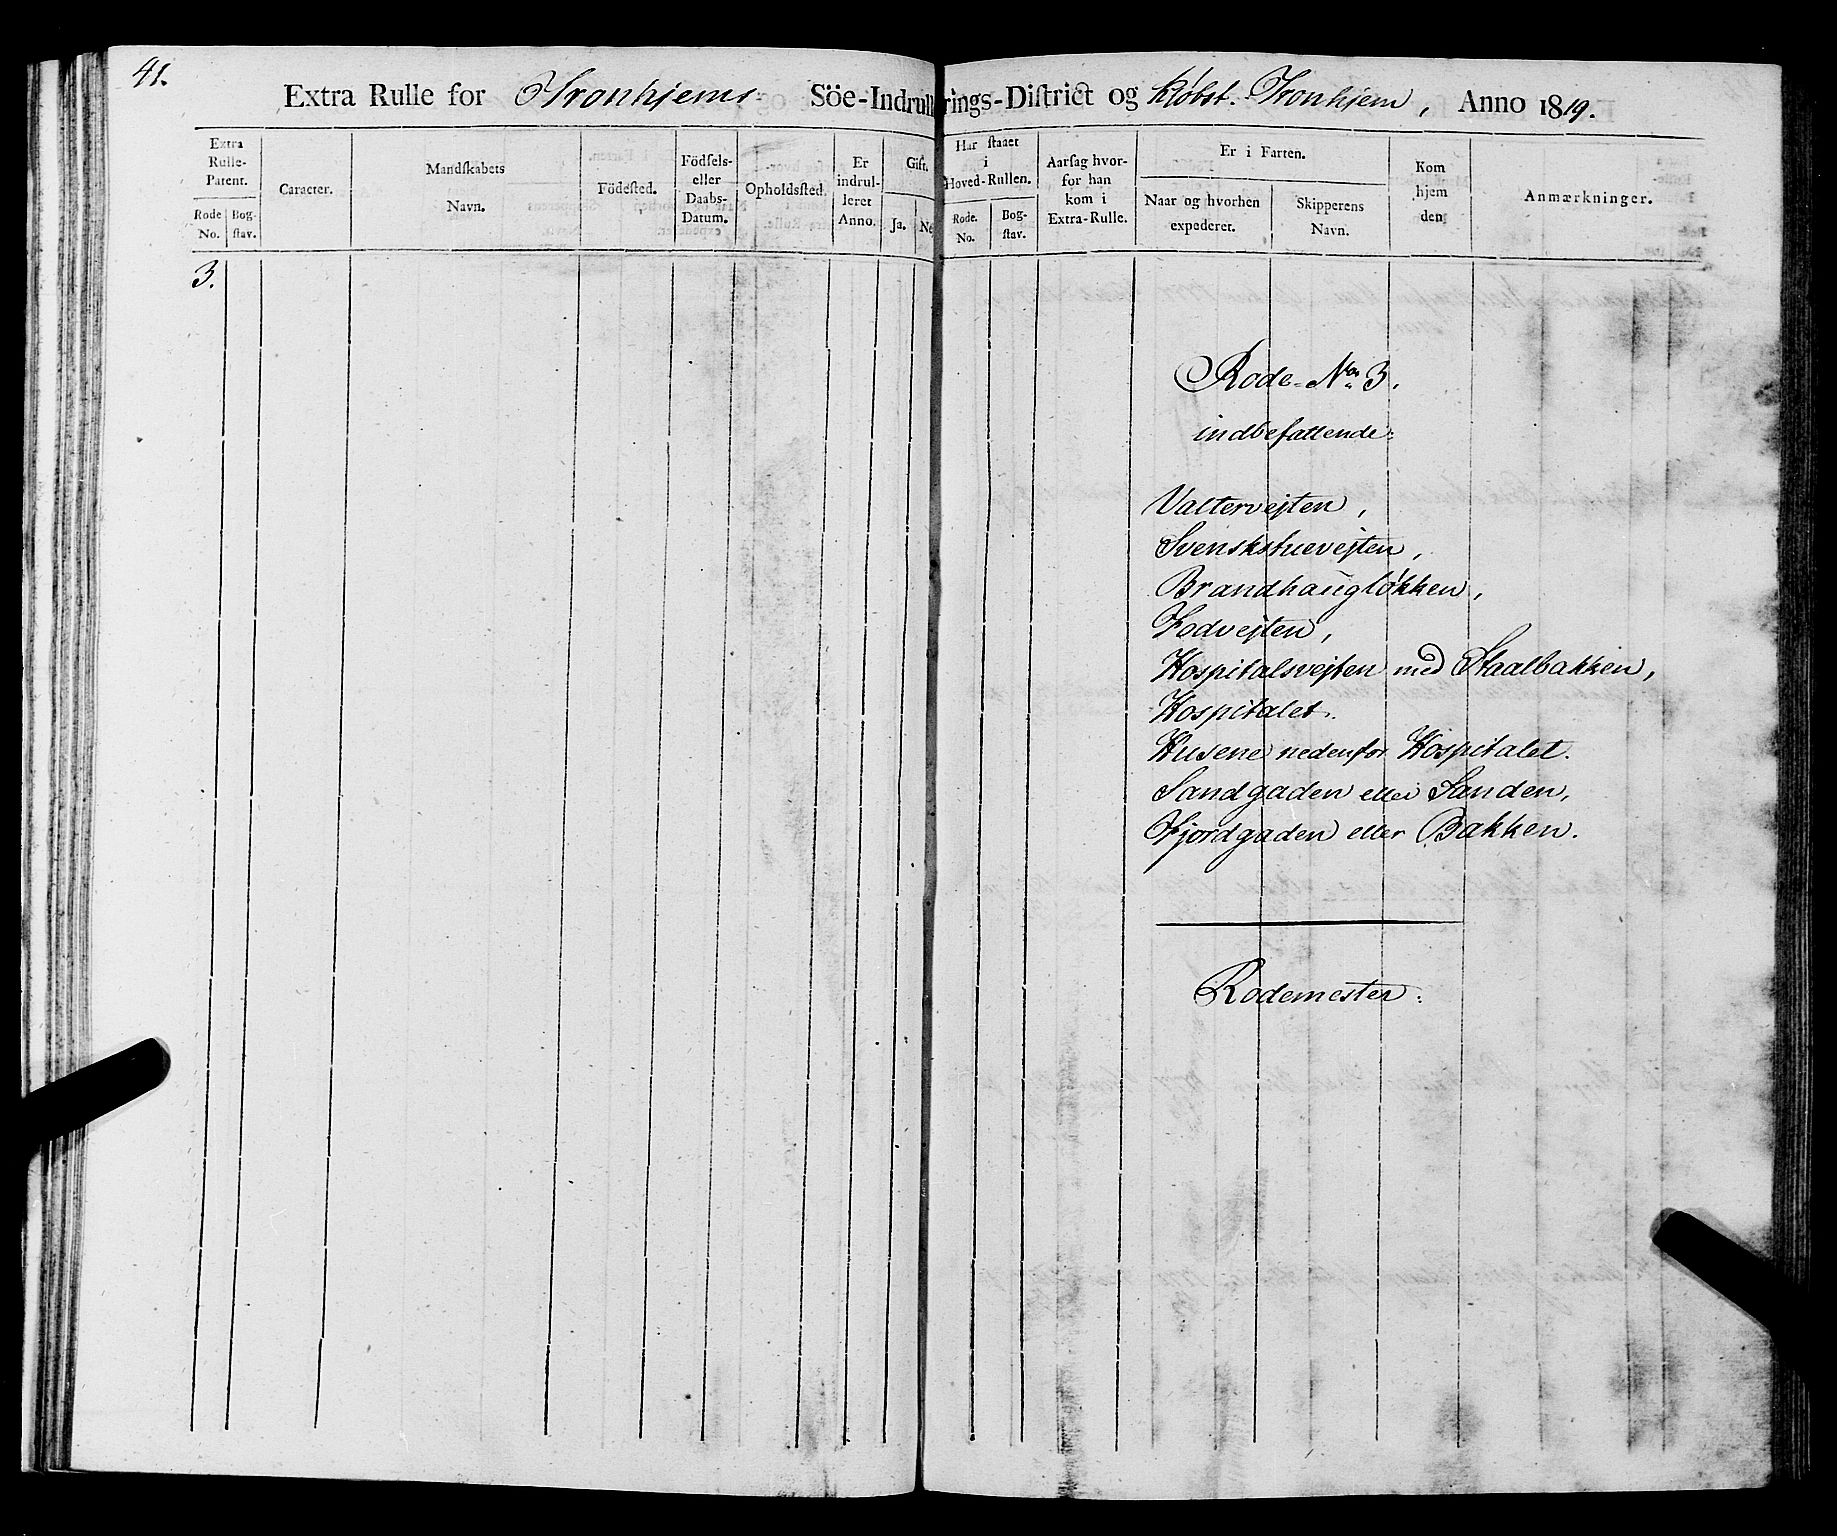 41.
Extra Rulle for Tronhjems Söe-Indrullerings-District og Kjøbst. Tronhjem, Anno 1819.
Extra Rulle-Patent.
Rode No.
Bog-stav.
Caracter.
Mandskabets Navn.
Födested.
Födsels- eller Daabs-Datum.
Opholdssted.
Er indrulleret Anno.
Gift.
Ja.
Har staaet i Hoved-Rullen.
Rode. No.
Bog-stav.
Aarsag hvorfor han kom i Extra-Rulle.
Er i Farten.
Naar og hvorhen expederet.
Skipperens Navn.
Kom hjem den
Anmærkninger.
3.
Rode-No. 3.
indbefattende:
Valtervejten,
Svenskstuevejten,
Brandhaugløkken,
Fodvejten,
Hospitalsvejten med Staalbakken,
Hospitalet.
Husene nedenfor Hospitalet.
Sandgaden eller Sanden,
Fjordgaden eller Bakken.
Rodemester: